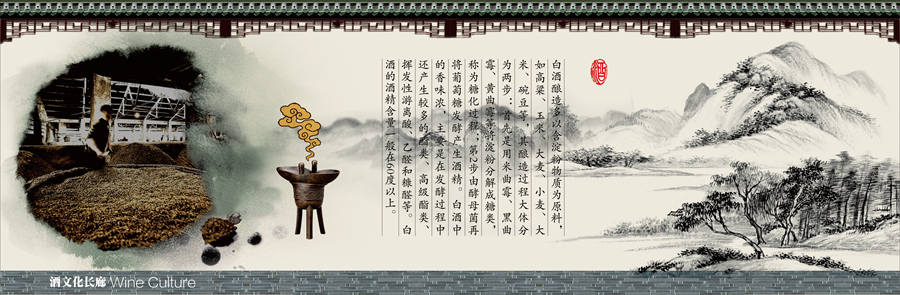 白酒酿造多以含淀粉物质为原料，
如高粱、玉米、大麦、小麦、大
米、碗豆等，其酿造过程大体分
为两步：首先是用米曲霉、黑曲
霉、黄曲霉等将淀粉分解成糖类，
称为糖化过程；第2步由酵母菌再
将葡萄糖发酵产生酒精。白酒中
的香味浓，主要是在发酵过程中
还产生较多的酯类、高级酯类、
挥发性游离酸、乙醛和糠醛等。白
酒的酒精含量一般在60度以上。
酒文化长廊 Wine Culture